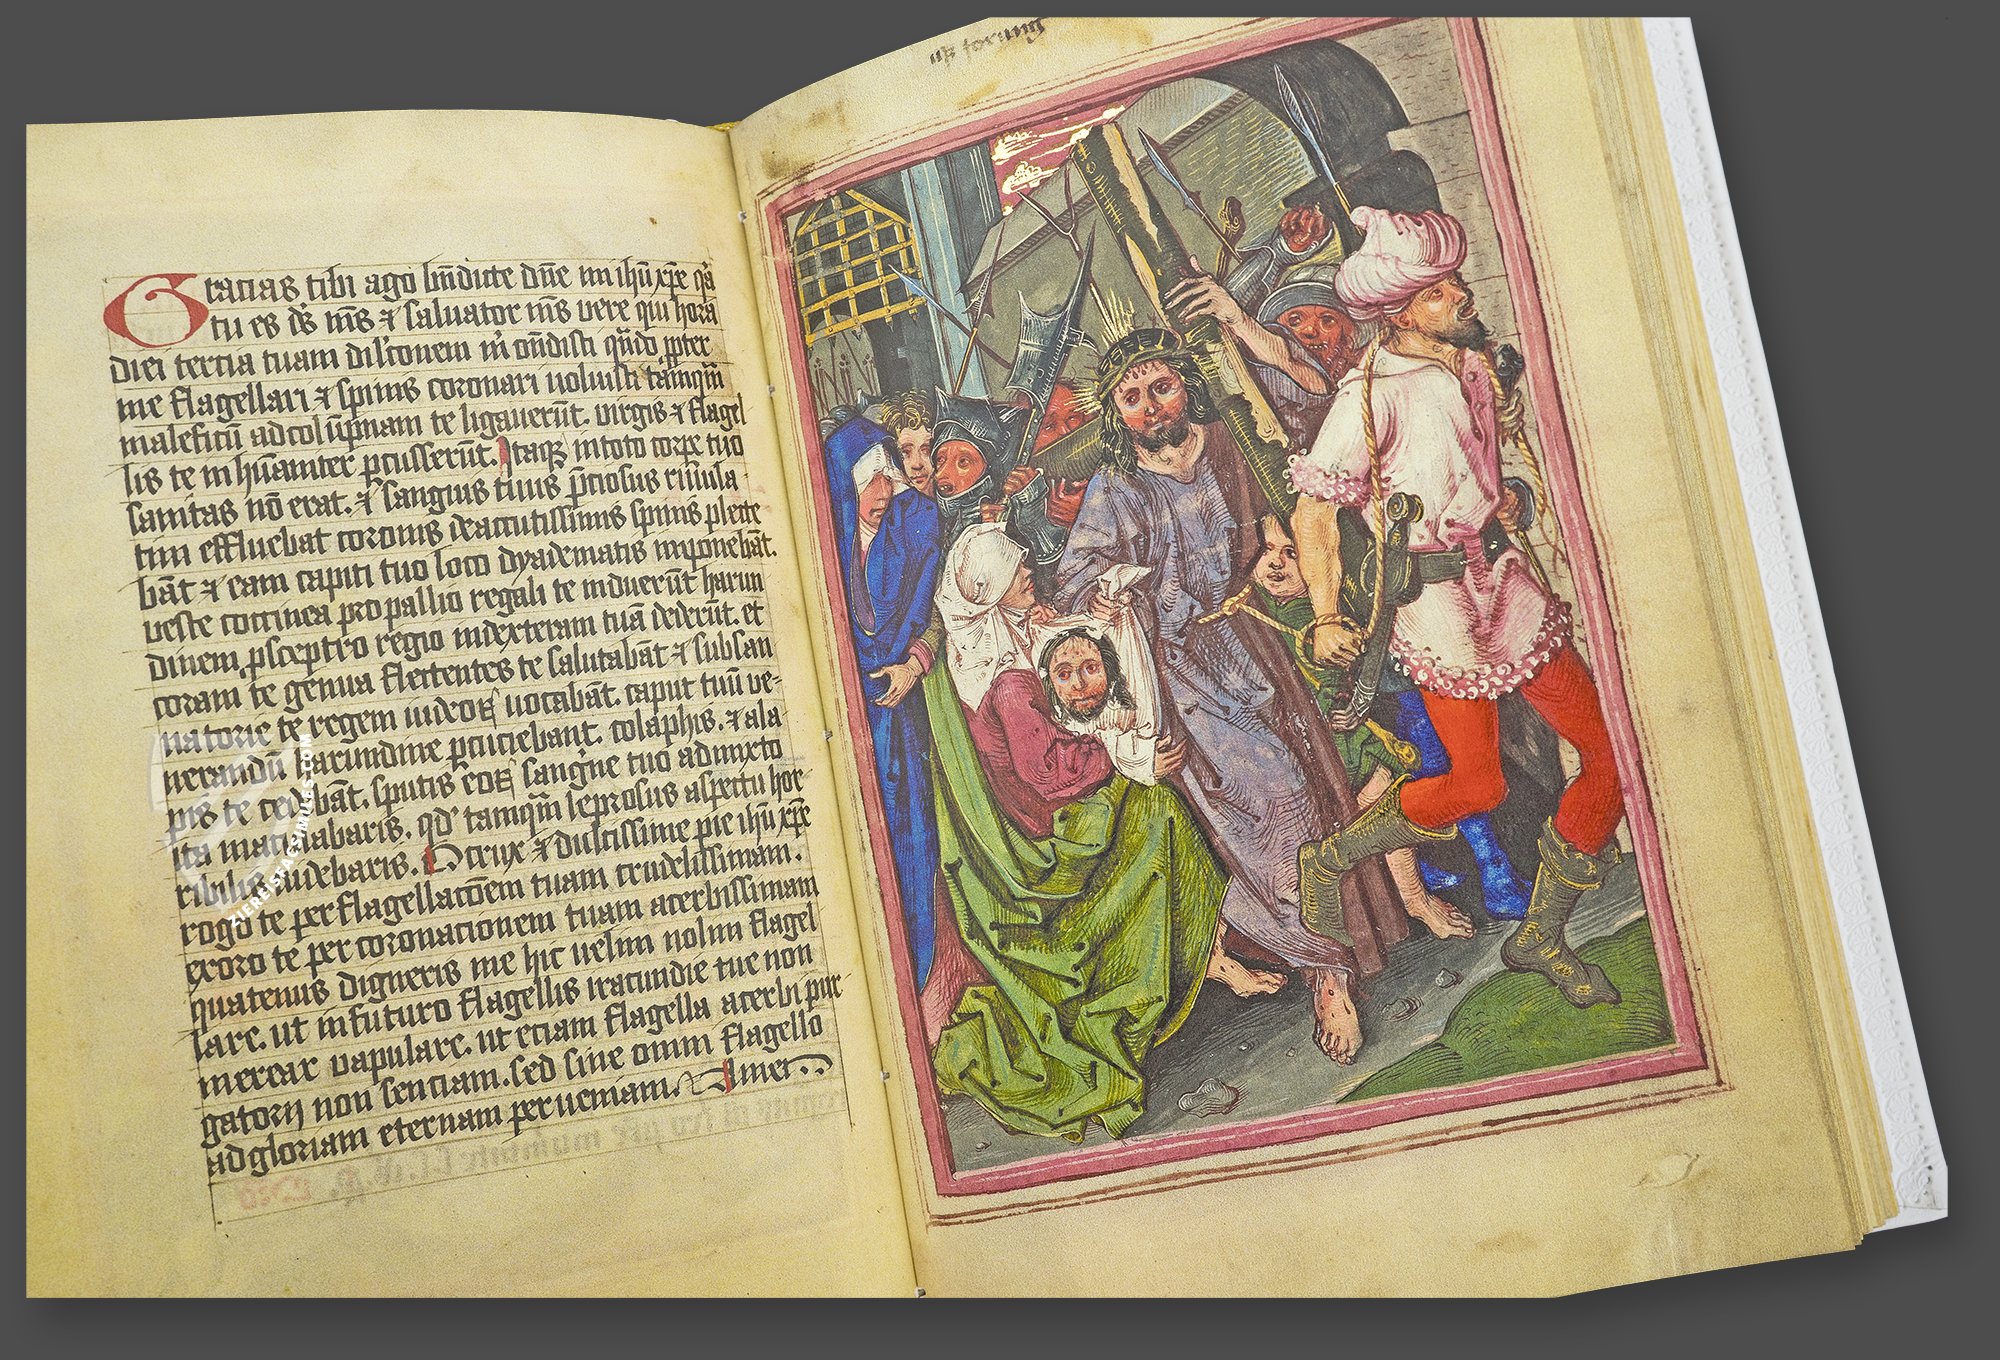 us forung
Gratias tibi ago bn̄dicte dn̄e mi ihū xp̄e qͣ
tu es ds̄ ms̄ ⁊ saluator ms̄ vere qui hora
diei tertia tuam dil'tonem m̄ on̄disti qn̄do ꝓpter
me flagellari ⁊ spinis coronari uoluisti tamqm̄
maleficū ad colūpnam te ligauerūt. virgis ⁊ flagel
lis te inhūaniter ꝑcusserūt. Itaqꝫ in toto corpe tuo
sanitas nō erat. ⁊ sangius tuus p̄tiosus riuula
tim effluebat coronis de acutissimis spinis plecte
bāt ⁊ eam capiti tuo loco dyadematis imponebāt.
veste coccinea pro pallio regali te induerūt harun
dinem ꝓ sceptro regio in dexteram tuā dederūt. et
coram te genua flectentes te salutabāt ⁊ subsan
natorie te regem iudeoꝝ uocabāt. caput tuū ve-
nerandū harundine ꝑcuciebant. colaphis. ⁊ ala
pis te cedebāt. sputis eoꝝ sangine tuo admixto
ita maculabaris. qd' tamqm̄ leprosus aspectu hor
ribilis uidebaris. O crux ⁊ dulcissime pie ihū xp̄e
rogo te per flagellacōem tuam crudelissimam.
exoro te per coronacionem tuam acerbissimam
quatenus digneris me hic uelim nolim flagel
lare. ut in futuro flagellis iracundie tue non
merear vapulare. ut eciam flagella acerbi pur
gatorij non senciam. sed sine omni flagello
ad gloriam eternam perueniam. Amen
ZIEREISFACSIMILES.COM